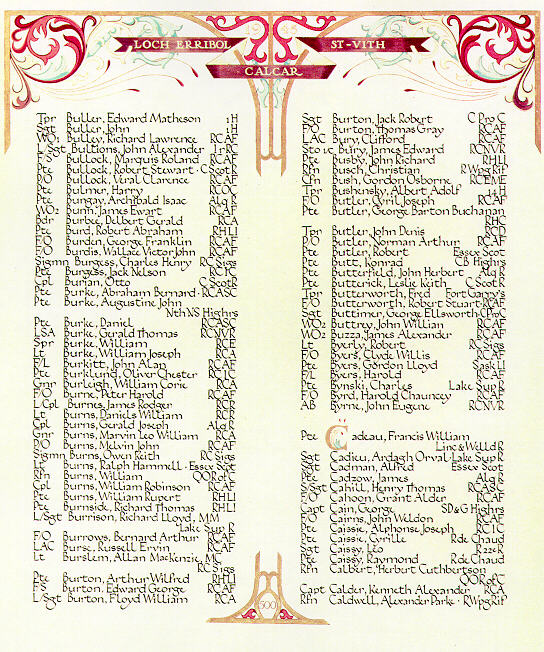 LOCH ERRIBOL
ST-VITH
CALCAR
Tpr Buller, Edward Matheson 1H
Sgt Buller, John 1H
WO1 Bulley, Richard Lawrence RCAF
L/Sgt Bullions, John Alexander IrRC
F/S Bullock, Marquis Roland RCAF
Pte Bullock, Robert Stewart · C Scot R
P/O Bullock, Veral Clarence RCAF
Pte Bulmer, Harry RCOC
Pte Bungay, Archibald Isaac Alq R
WO2 Bunn, James Ewart RCAF
Bdr Burbee, Delbert Gerald RCA
Pte Burd, Robert Abraham RHLI
F/O Burden, George Franklin RCAF
F/O Burdis, Wallace Victor John RCAF
Sigmn Burgess, Charles Henry RC Sigs
Pte Burgess, Jack Nelson RCIC
Cpl Burian, Otto C Scot R
Pte Burke, Abraham Bernard · RCASC
Pte Burke, Augustine John
Nth NS Highrs
Pte Burke, Daniel RCASC
LSA Burke, Gerald Thomas RCNVR
Spr Burke, William RCE
Lt Burke, William Joseph RCA
F/L Burkitt, John Alan RCAF
Pte Burklund, Oliver Chester RCIC
Gnr Burleigh, William Corie RCA
F/O Burne, Peter Harold RCAF
L/Cpl Burnes, James Rodger RCR
Lt Burns, Daniels William RCR
Cpl Burns, Gerald Joseph Alq R
Gnr Burns, Marvin Leo William RCA
P/O Burns, Melvin John RCAF
Sigmn Burns, Owen Keith RC Sigs
Lt Burns, Ralph Hammell · Essex Scot
Rfn Burns, William QOR of C
Cpl Burns, William Robinson RCAF
Pte Burns, William Rupert RHLI
Pte Burnside, Richard Thomas RHLI
L/Sgt Burrison, Richard Lloyd, MM
Lake Sup R
F/O Burrows, Bernard Arthur RCAF
LAC Burse, Russell Ervin RCAF
Lt Burslem, Allan MacKenzie, MC
RC Sigs
Pte Burton, Arthur Wilfred RHLI
FS Burton, Edward George RCAF
L/Sgt Burton, Floyd William RCA
Sgt Burton, Jack Robert C Pro C
F/O Burton, Thomas Gray RCAF
LAC Bury, Clifford RCAF
Sto 1c Bury, James Edward RCNVR
Pte Busby, John Richard RHLI
Rfn Busch, Christian R Wpg Rif
Cfn Bush, Gordon Osborne RCEME
Tpr Bushensky, Albert Adolf 14 H
F/O Butler, Cyril Joseph RCAF
Pte Butler, George Barton Buchanan
RHC
Tpr Butler, John Denis RCD
P/O Butler, Norman Arthur RCAF
Pte Butler, Robert Essex Scot
Pte Butt, Konrad CB Highrs
Pte Butterfield, John Herbert Alq R
Pte Butterick, Leslie Keith C Scot R
Tpr Butterworth, Fred Fort Garry's
F/O Butterworth, Robert Stuart · RCAF
Sgt Buttimer, George Ellsworth · C Pro C
WO2 Buttrey, John Willian RCAF
WO2 Buzza, James Alexander RCAF
Lt Byerly, Robert RC Sigs
F/O Byers, Clyde Willis RCAF
Pte Byers, Gordon Lloyd Sask LI
F/L Byers, Harold RCAF
Pte Bynski, Charles Lake Sup R
F/O Byrd, Harold Chauncey RCAF
AB Byrne, John Eugene RCNVR
Pte Cadeau, Francis William
Linc & Welld R
Sgt Cadieu, Ardagh Orval · Lake Sup R
Sgt Cadman, Alfred Essex Scot
Pte Cadzow, James Alq R
S/Sgt Cahill, Henry Thomas RCASC
F/O Cahoon, Grant Alder RCAF
Capt Cain, George SD & G Highrs
F/O Cairns, John Weldon RCAF
Pte Caissie, Alphonse Joseph RCIC
Pte Caissie, Cyrille R de Chaud
Sgt Caissy, Léo R 22e R
Pte Caissy, Raymond R de Chaud
Rfn Calbert, Herbert Cuthbertson
QOR of C
Capt Calder, Kenneth Alexander RCA
Rfn Caldwell, Alexander Parke · R Wpg Rif
500